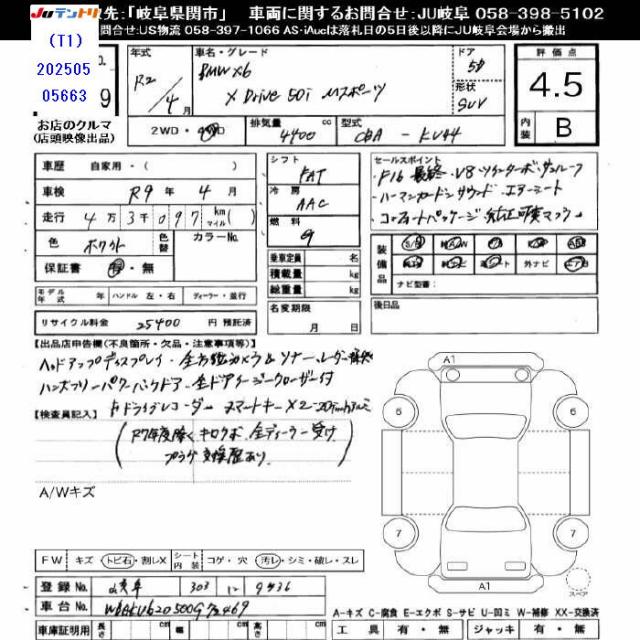 JUテントリ 先:「岐阜県関市」 車両に関するお問合せ:JU岐阜 058-398-5102
問合せ:US物流 058-397-1066 AS-iAucは落札日の5日後以降にJU岐阜会場から搬出
(T1)
202505
05663
9
お店のクルマ
(店頭映像出品)
年式 R2/4月
車名・グレード
BMW X6
X Drive 50i Mスポーツ
ドア 5D
形状 SUV
評価点
4.5
内装 B
2WD・4WD
排気量 4400 cc
型式 CBA - KU44
車歴 自家用・( )
車検 R9年 4月
走行 4万3千097 km(マイル)
色 ホワイト 色替 カラーNo.
保証書 有・無
モデル年式 年 ハンドル 左・右 ディーラー・並行
リサイクル料金 25400 円 預託済
シフト FAT
冷房 AAC
燃料 G
乗車定員 名
積載量 kg
総重量 kg
名変期限
月 日
セールスポイント
・F16 最終・V8ツインターボ・サンルーフ
・ハーマンカードンサウンド・エアーシート
・コンフォートパッケージ・純正可変マフラー
装備品
外ナビ
ナビ型番:
後日品
【出品店申告欄(不良箇所・欠品・注意事項等)】
ヘッドアップディスプレイ・全方位カメラ&ソナー・レーダー探知
ハンズフリーパワーバックドア・全ドアイージークローザー付
【検査員記入】 ドライブレコーダー スマートキー×2
R7年度除くキロクボ 全ディーラー受け
プラグ交換歴あり
A/Wキズ
A1
6
6
7
7
A1
スペーア
FW キズ・トビ石・割レX シート内装 コゲ・穴 汚レ・シミ・破レ・スレ
登録No. 岐阜 303
車台No.
車庫証明用 長さ cm 幅 cm 高さ cm
A-キズ C-腐食 E-エクボ S-サビ U-凹ミ W-補修 XX-交換済
工具 有・無 ジャッキ 有・無